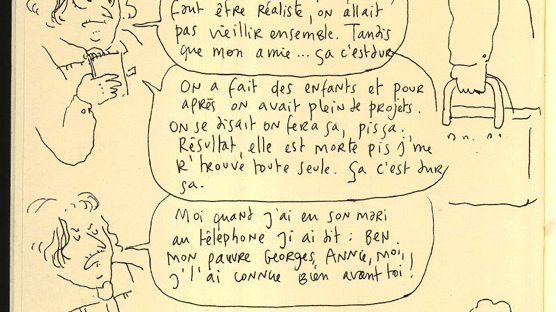 faut être réaliste, on allait
pas vieillir ensemble. Tandis
que mon amie... ça c'est dur
On a fait des enfants et pour
après on avait plein de projets.
On se disait on fera sa, pis sa.
Résultat, elle est morte pis j'me
r'trouve toute seule. Ça c'est dur
sa.
Moi quand j'ai eu son mari
au téléphone ji ai dit : Ben
mon pauvre Georges, Anne, moi,
j'l'ai connue bien avant toi !